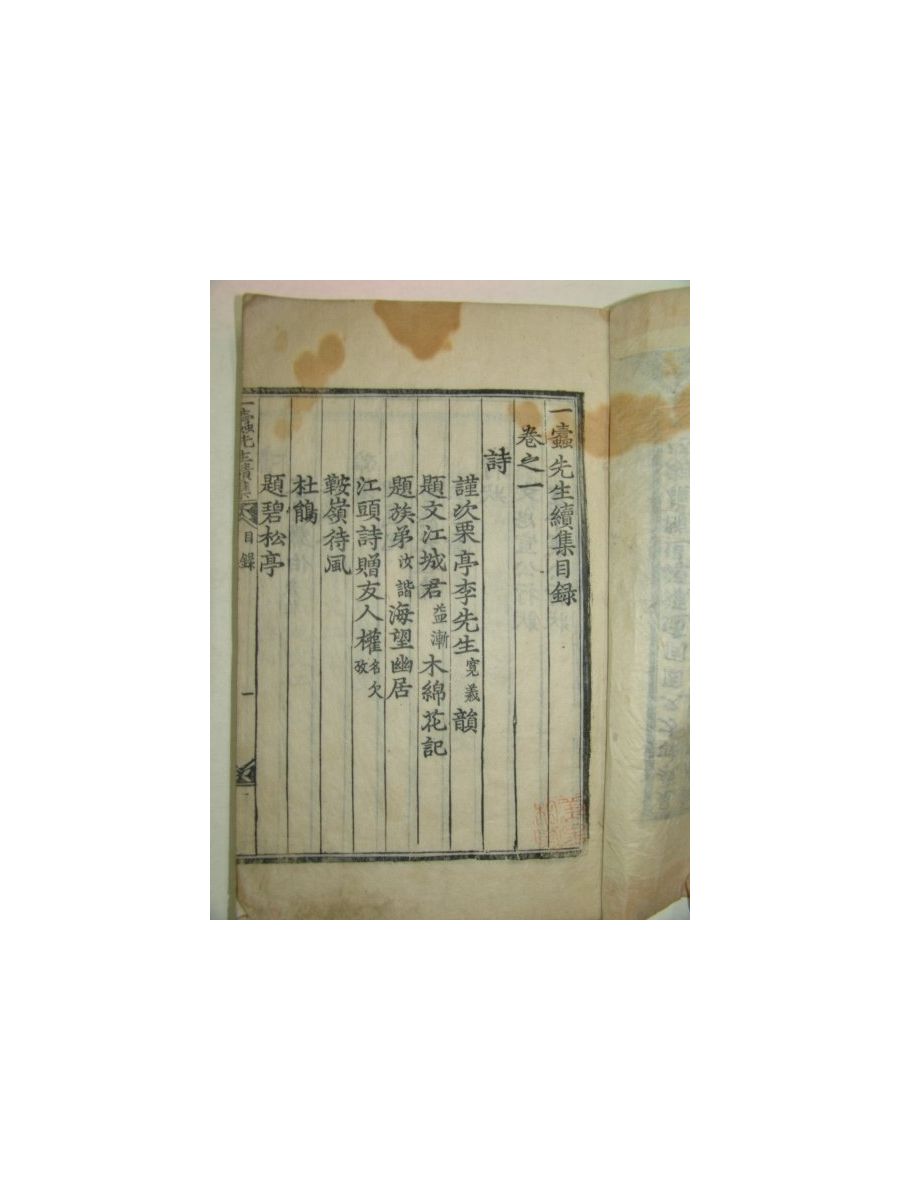 一蠹先生續集目録
卷之一
詩
謹次栗亭李先生寬義韻
題文江城君益漸木綿花記
題族弟汝諧海望幽居
江頭詩贈友人權名欠攷
鞍嶺待風
杜鵑
題碧松亭
一蠹先生續集 目錄 一